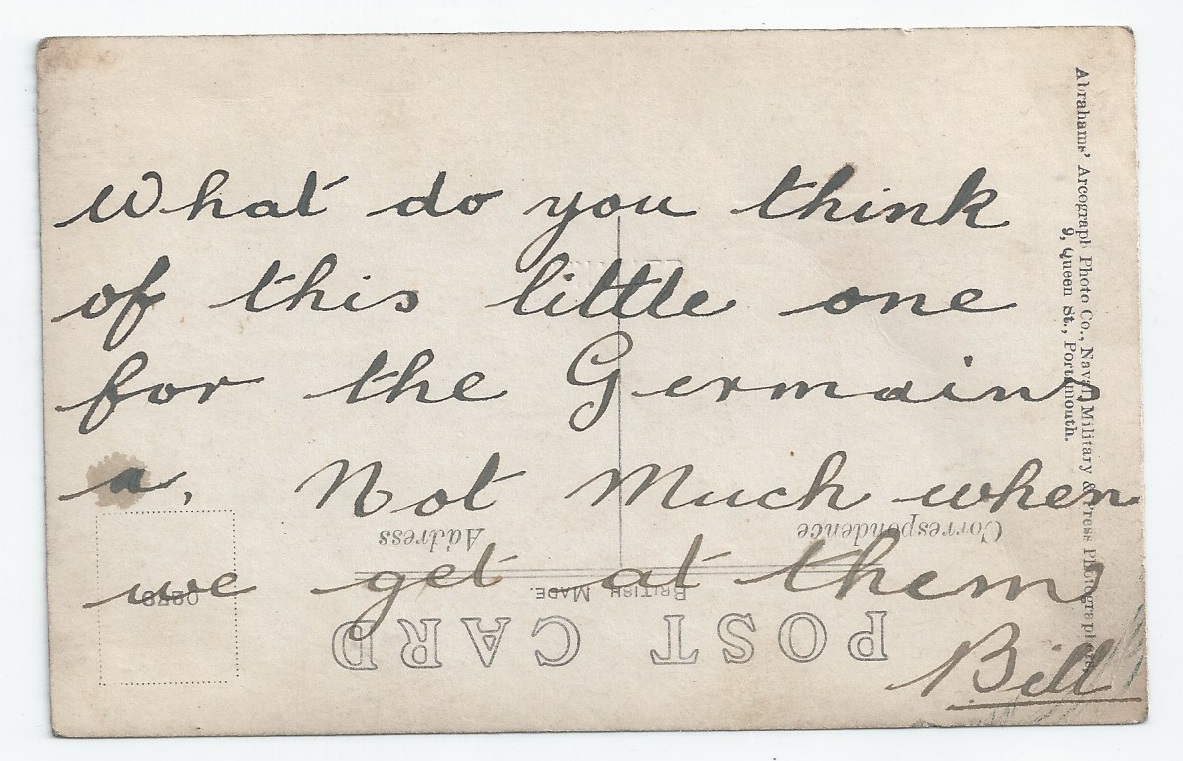 What do you think
of this little one
for the Germains
a. Not Much when
we get at them
Bill
Abrahams' Arcograph Photo Co., Naval, Military & Press Photographers,
9, Queen St., Portsmouth.
POST CARD
BRITISH MADE.
Correspondence
Address